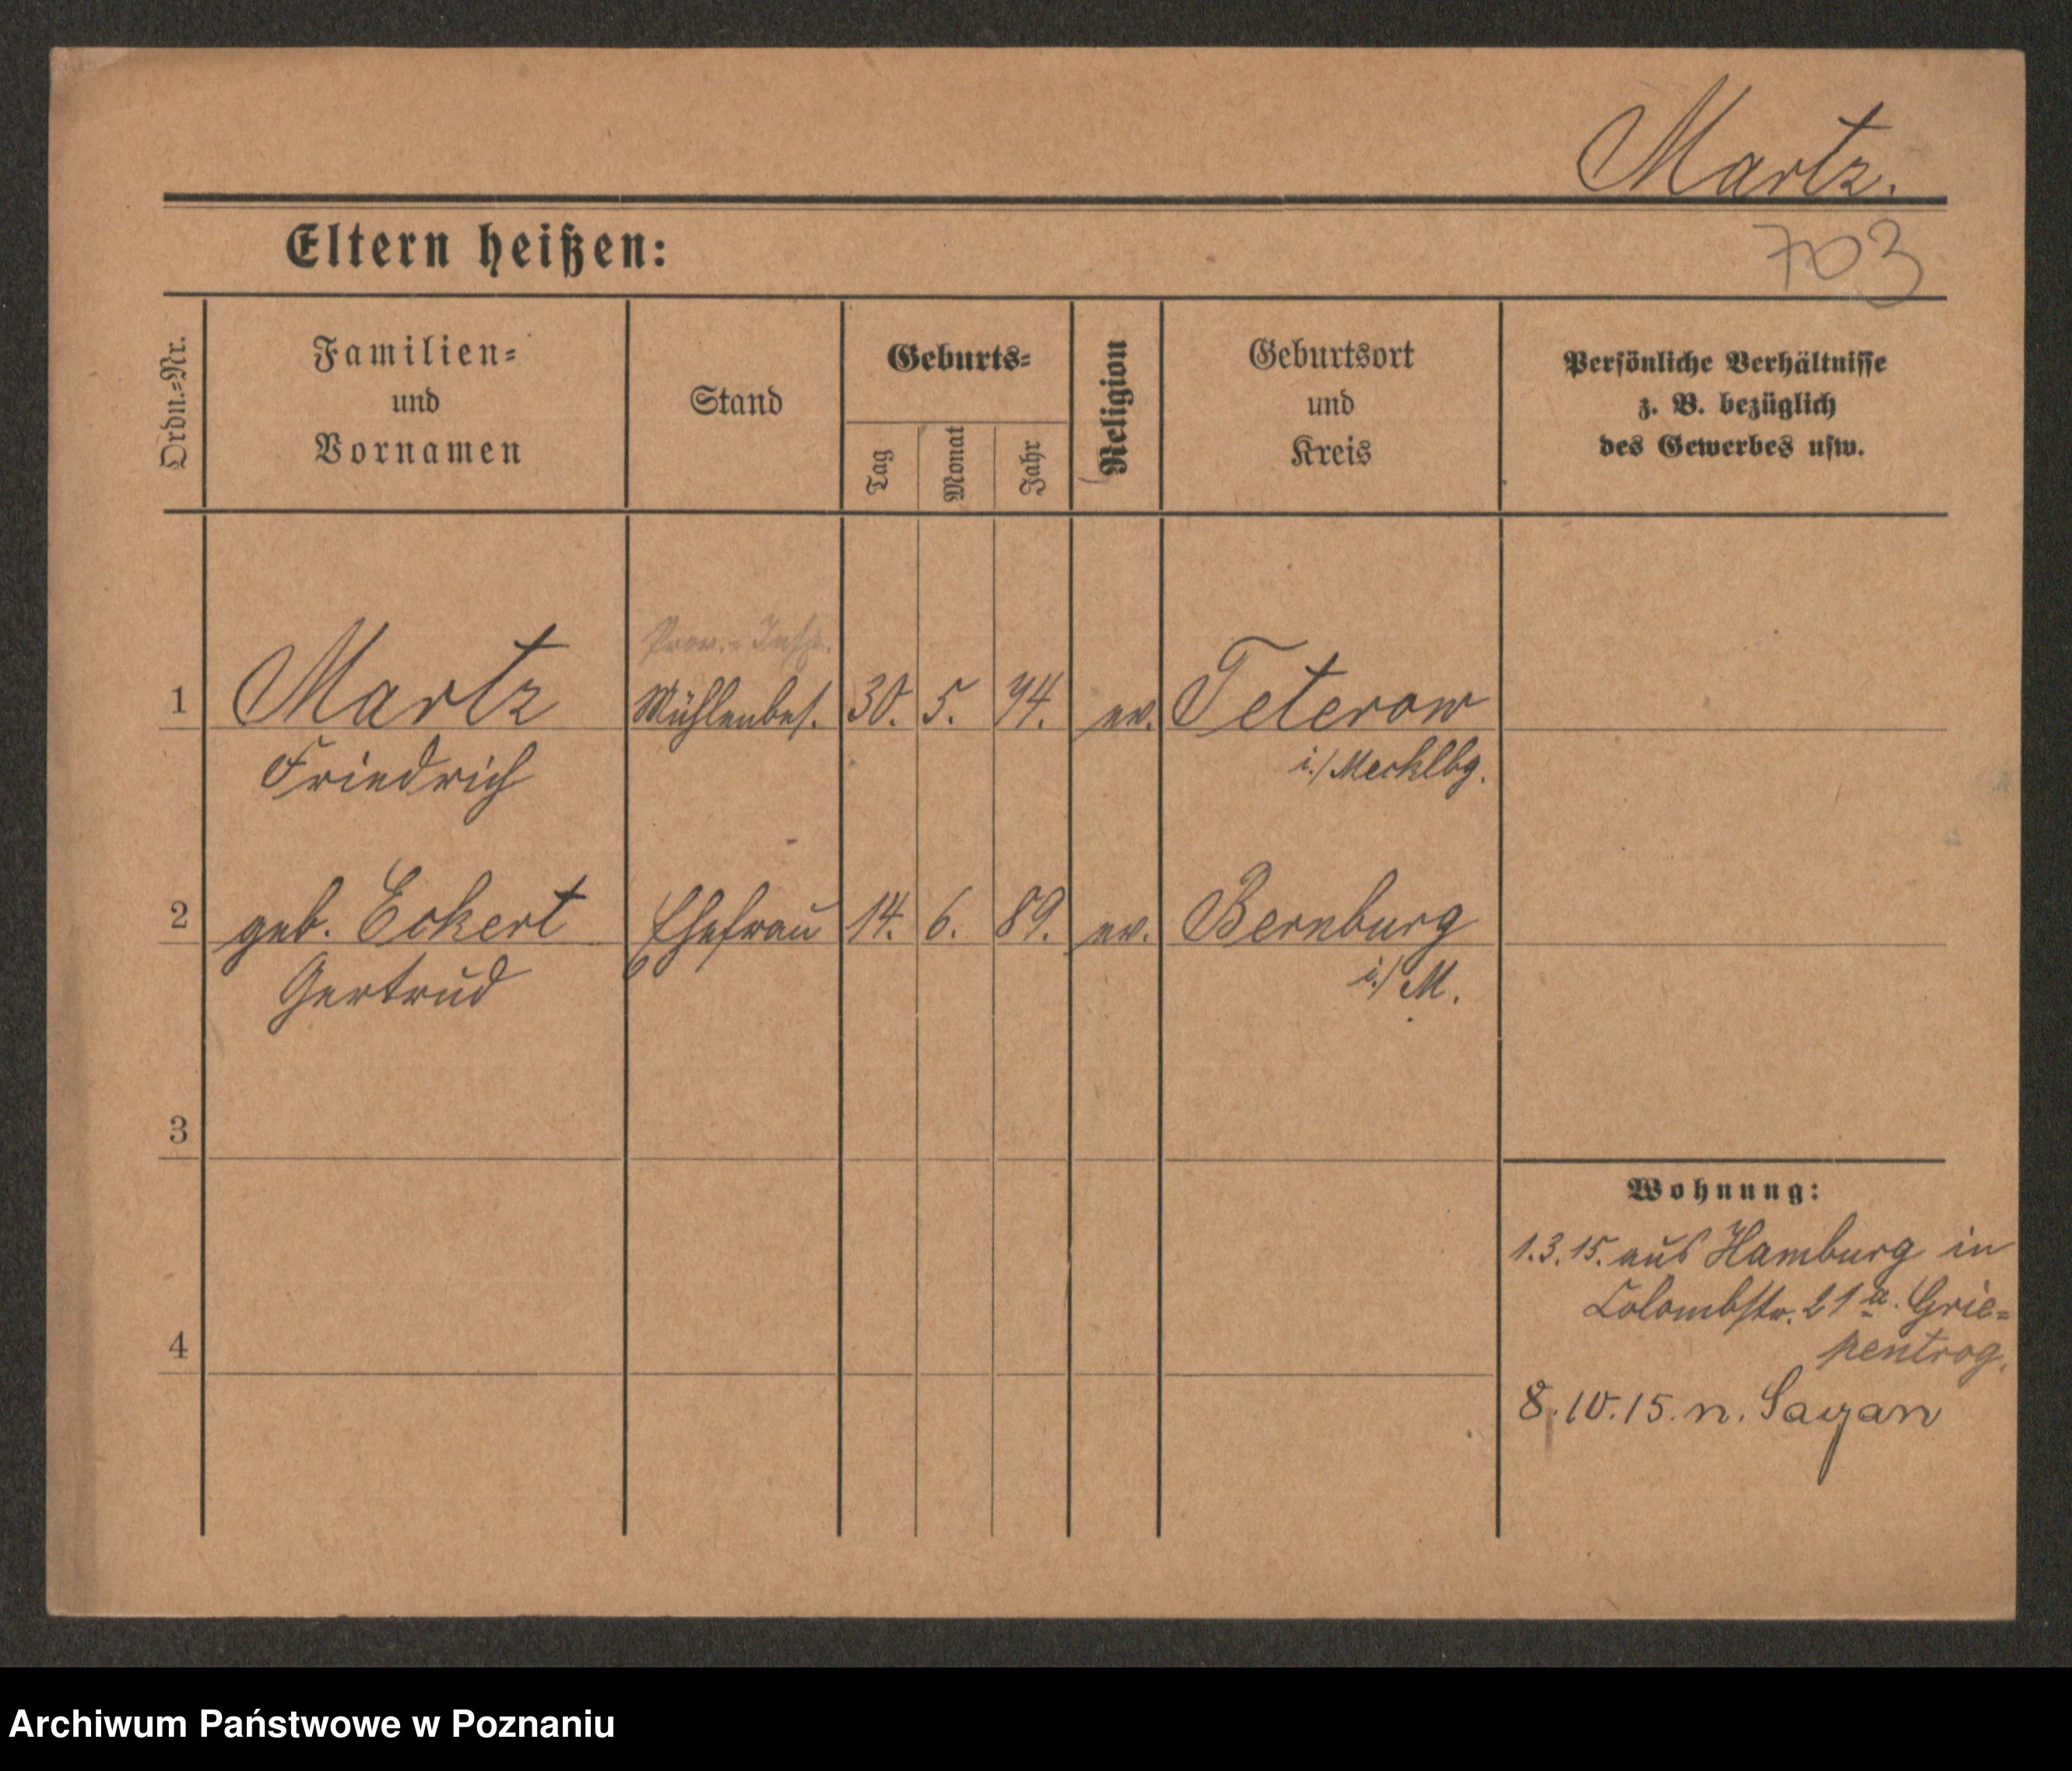 Martz.
Eltern heißen:
703
Ordn.-Nr.
Familien-
und
Vornamen
Stand
Geburts-
Tag
Monat
Jahr
Religion
Geburtsort
und
Kreis
Persönliche Verhältnisse
z. B. bezüglich
des Gewerbes usw.
Prov.-Insp.
1 Martz Mühlenbes. 30. 5. 74. ev. Teterow
Friedrich i./Mecklbg.
2 geb. Eckert Ehefrau 14. 6. 89. ev. Bernburg
Gertrud i./M.
3
Wohnung:
1.3.15. aus Hamburg in
Colombstr. 21a. Grie-
pentrog.
4
8.10.15. n. Sagan
Archiwum Państwowe w Poznaniu